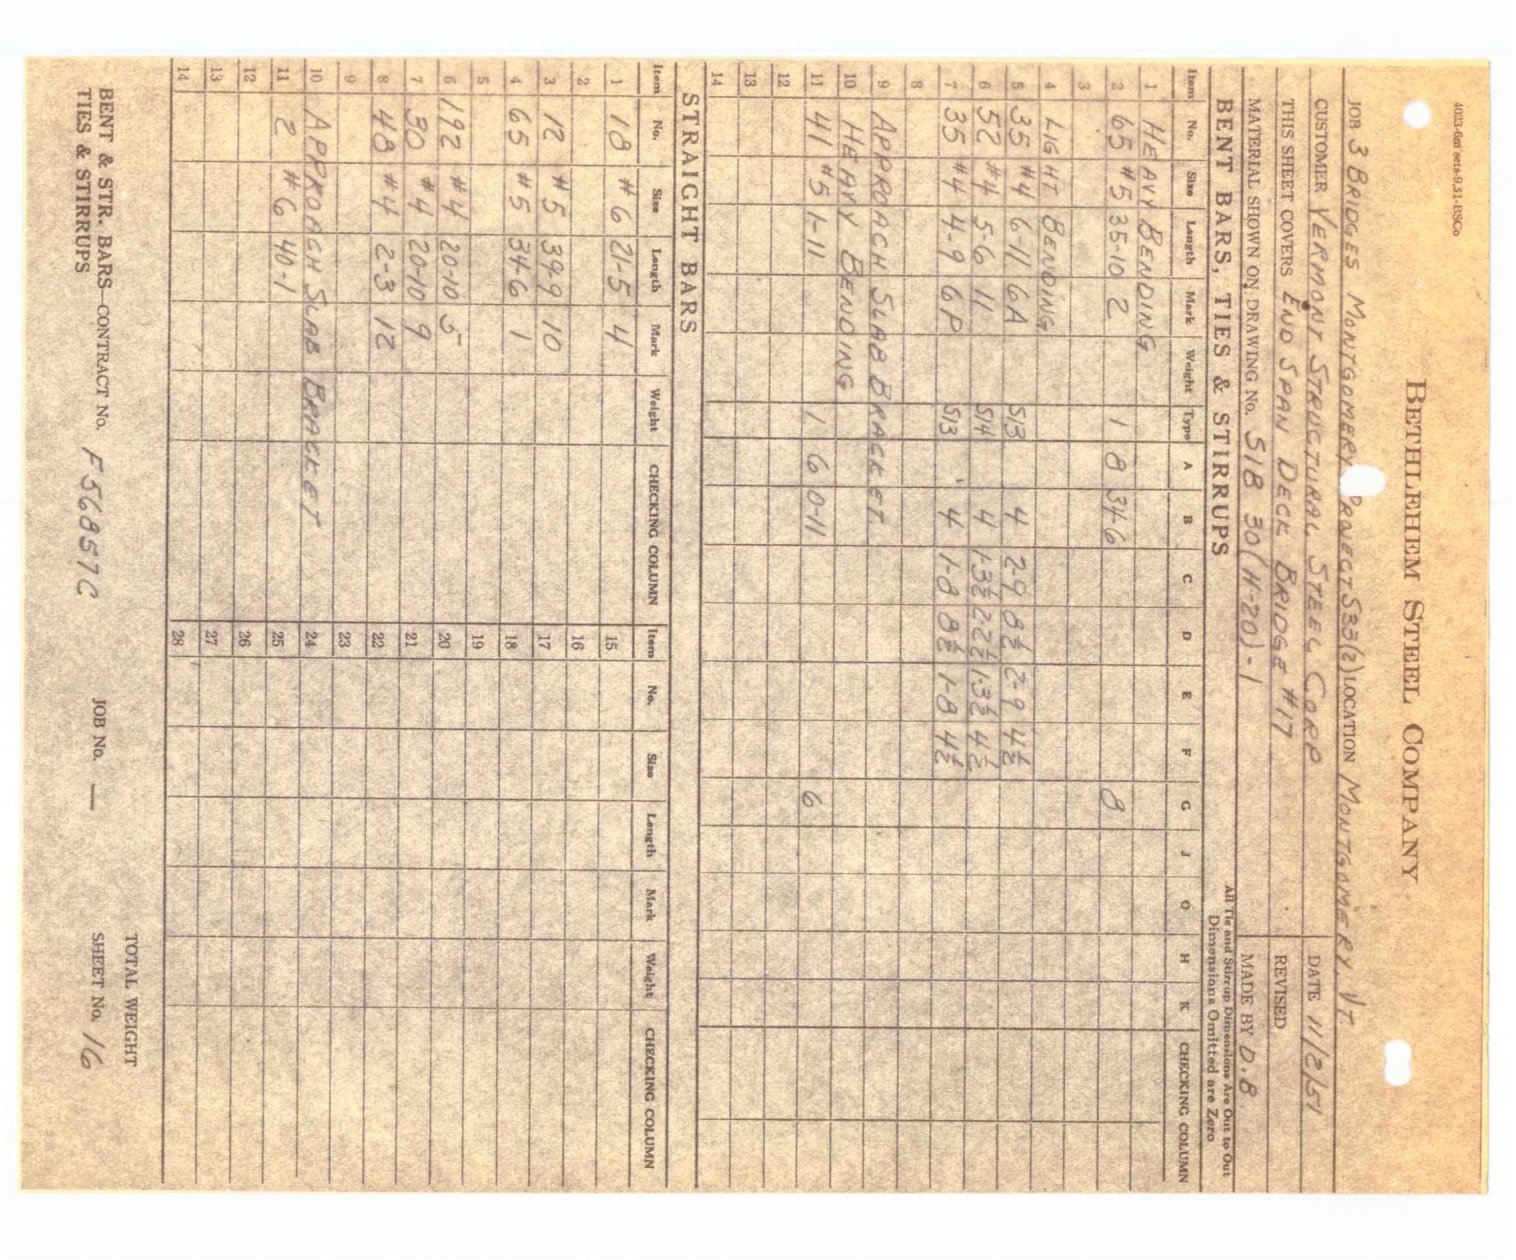 4023-6m sets-9.51-BSCo
BETHLEHEM STEEL COMPANY
JOB 3 BRIDGES MONTGOMERY PROJECT S33(2) LOCATION MONTGOMERY, VT
CUSTOMER VERMONT STRUCTURAL STEEL CORP DATE 11/2/51
THIS SHEET COVERS END SPAN DECK BRIDGE #17 REVISED
MATERIAL SHOWN ON DRAWING No. 51B 30(H-20)-1 MADE BY D.B
BENT BARS, TIES & STIRRUPS All Tie and Stirrup Dimensions Are Out to Out
Dimensions Omitted are Zero
Item No. Size Length Mark Weight Type A B C D E F G J O H K CHECKING COLUMN
1 HEAVY BENDING
2 65 #5 35-10 2 1 8 34-6 8
3
4 LIGHT BENDING
5 35 #4 6-11 6A S13 4 2-9 8½ 2-9 4½
6 52 #4 5-6 11 S14 4 1-3½ 2-2½ 1-3½ 4½
7 35 #4 4-9 6P S13 4 1-8 8½ 1-8 4½
8
9 APPROACH SLAB BRACKET
10 HEAVY BENDING
11 41 #5 1-11 1 6 0-11 6
12
13
14
STRAIGHT BARS
Item No. Size Length Mark Weight CHECKING COLUMN Item No. Size Length Mark Weight CHECKING COLUMN
1 18 #6 21-5 4 15
2 16
3 12 #5 39-9 10 17
4 65 #5 34-6 1 18
5 19
6 192 #4 20-10 5 20
7 30 #4 20-10 9 21
8 48 #4 2-3 12 22
9 23
10 APPROACH SLAB BRACKET 24
11 2 #6 40-1 25
12 26
13 27
14 28
TOTAL WEIGHT
BENT & STR. BARS—CONTRACT No. F56857C JOB No. — SHEET No. 16
TIES & STIRRUPS